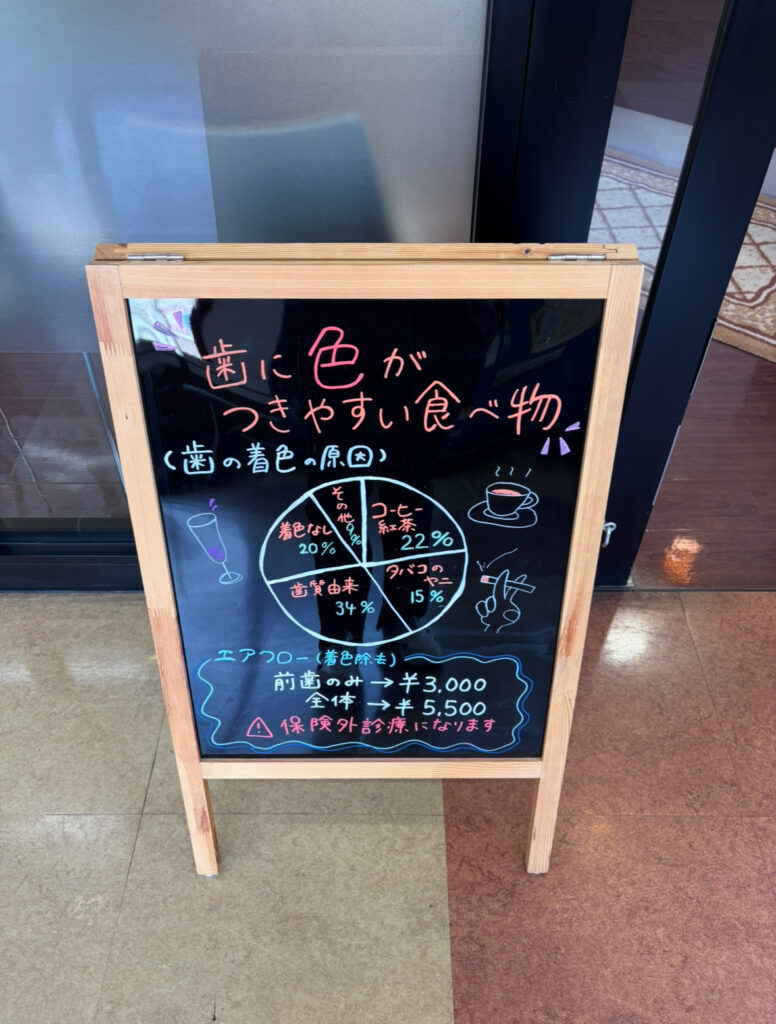 歯に色が
つきやすい食べ物
(歯の着色の原因)
コーヒー
紅茶
22%
タバコの
ヤニ
15%
歯質由来
34%
着色なし
20%
その他
9%
エアフロー(着色除去)
前歯のみ→¥3,000
全体→¥5,500
⚠保険外診療になります